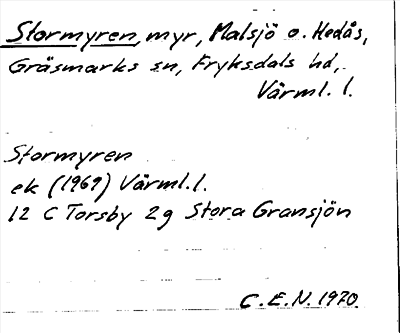 Stormyren, myr, Malsjö o. Hedås,
Gräsmarks sn, Fryksdals hd,
Värml. l.
Stormyren
ek (1969) Värml. l.
12 C Torsby 2g Stora Gransjön
C. E. N. 1970.